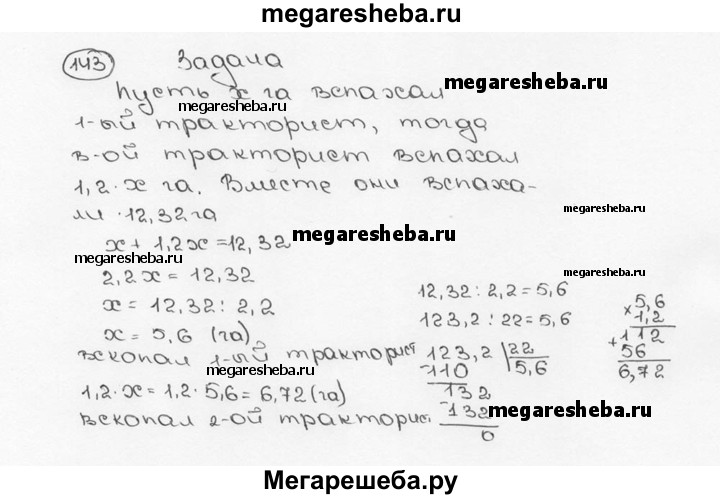 megaresheba.ru
143 Задача
Пусть х га вспахал megaresheba.ru
megaresheba.ru
1-ый тракторист, тогда
в-ой тракторист вспахал
1,2·х га. Вместе они вспаха-
ли 12,32га megaresheba.ru
х + 1,2х = 12,32 megaresheba.ru
2,2х = 12,32
х = 12,32 : 2,2
х = 5,6 (га)
вскопал 1-ый тракторист
megaresheba.ru
1,2·х = 1,2·5,6 = 6,72 (га)
вскопал 2-ой тракторис
megaresheba.ru
12,32 : 2,2 = 5,6
123,2 : 22 = 5,6
123,2 22
110 5,6
132
132 megaresheba.ru
0
5,6
× 1,2
112
+ 56
6,72
megaresheba.ru
Мегарешеба.ру